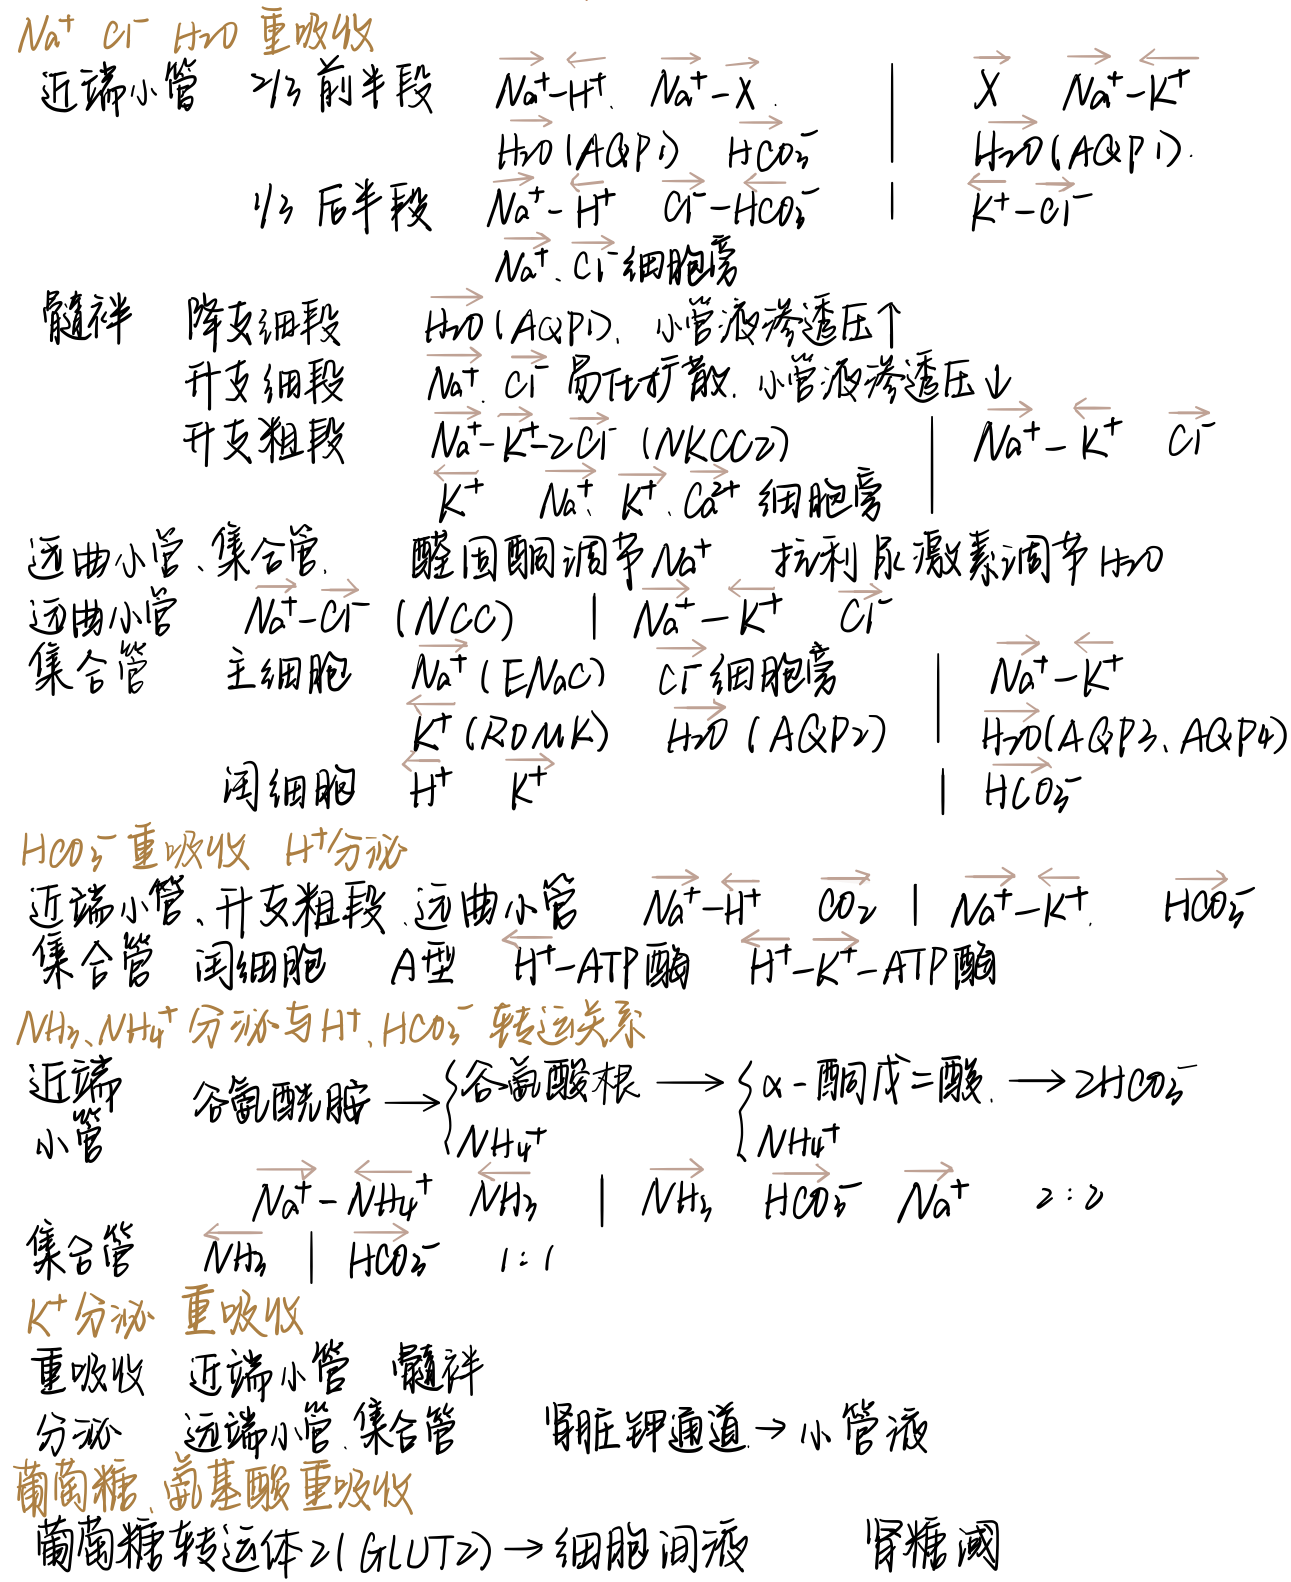 Na⁺ Cl⁻ H₂O 重吸收
近端小管 2/3 前半段 Na⁺-H⁺. Na⁺-X. | X Na⁺-K⁺
H₂O(AQP1) HCO₃⁻ | H₂O(AQP1).
1/3 后半段 Na⁺-H⁺ Cl⁻-HCO₃⁻ | K⁺-Cl⁻
Na⁺、Cl⁻细胞旁
髓袢 降支细段 H₂O(AQP1). 小管液渗透压↑
升支细段 Na⁺. Cl⁻ 易化扩散. 小管液渗透压↓
升支粗段 Na⁺-K⁺-2Cl⁻ (NKCC2) | Na⁺-K⁺ Cl⁻
K⁺ Na⁺、K⁺、Ca²⁺ 细胞旁
远曲小管、集合管. 醛固酮调节Na⁺ 抗利尿激素调节H₂O
远曲小管 Na⁺-Cl⁻ (NCC) | Na⁺-K⁺ Cl⁻
集合管 主细胞 Na⁺(ENaC) Cl⁻细胞旁 | Na⁺-K⁺
K⁺(ROMK) H₂O (AQP2) | H₂O(AQP3、AQP4)
闰细胞 H⁺ K⁺ | HCO₃⁻
HCO₃⁻重吸收 H⁺分泌
近端小管、升支粗段、远曲小管 Na⁺-H⁺ CO₂ | Na⁺-K⁺. HCO₃⁻
集合管 闰细胞 A型 H⁺-ATP酶 H⁺-K⁺-ATP酶
NH₃、NH₄⁺分泌与H⁺、HCO₃⁻转运关系
近端小管 谷氨酰胺→{谷氨酸根 → {α-酮戊二酸. → 2HCO₃⁻
NH₄⁺ NH₄⁺
Na⁺-NH₄⁺ NH₃ | NH₃ HCO₃⁻ Na⁺ 2:2
集合管 NH₃ | HCO₃⁻ 1:1
K⁺分泌 重吸收
重吸收 近端小管 髓袢
分泌 远端小管、集合管 肾脏钾通道→小管液
葡萄糖、氨基酸重吸收
葡萄糖转运体2(GLUT2)→细胞间液 肾糖阈